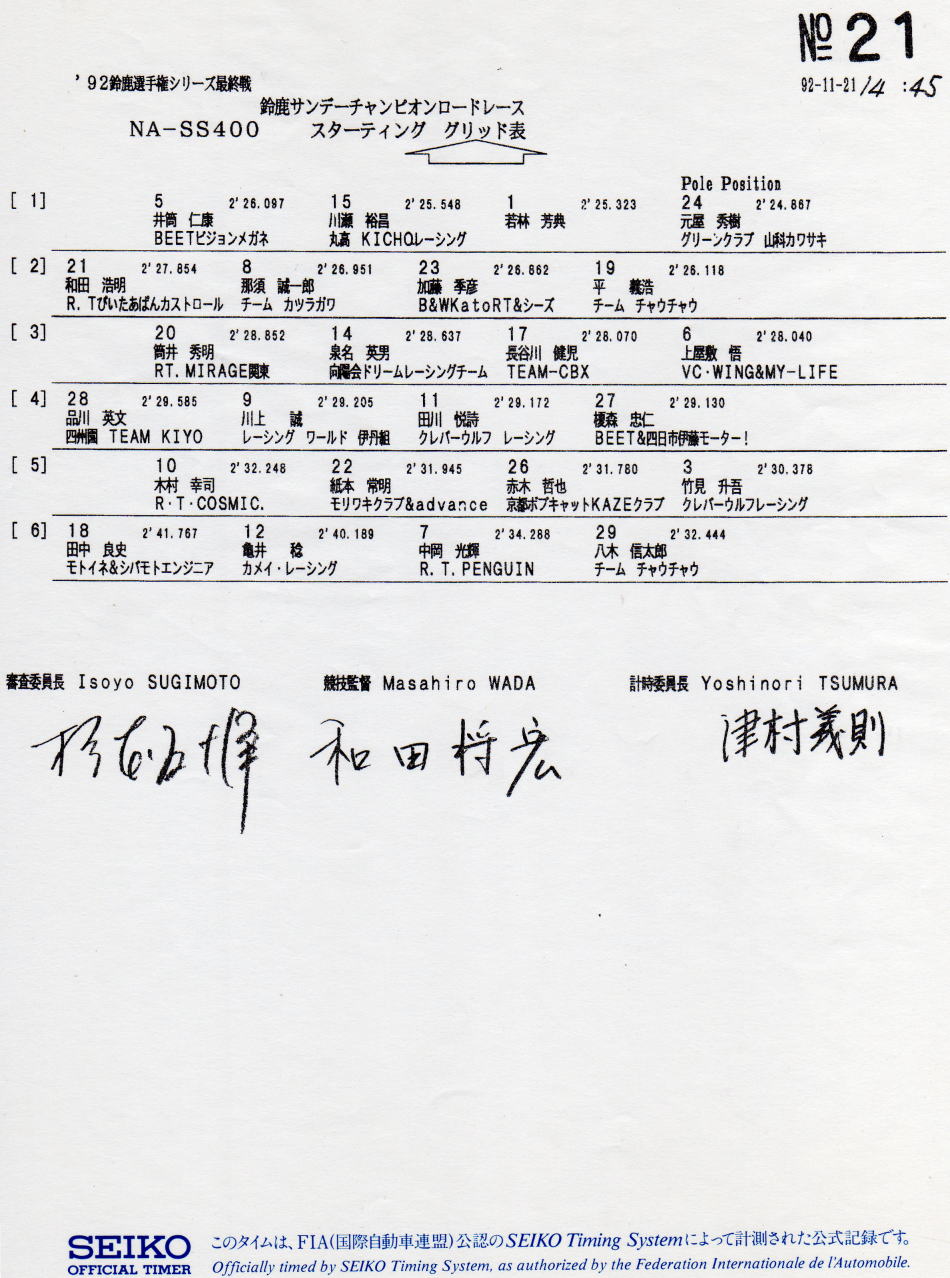 № 21
92-11-21 14:45
'92鈴鹿選手権シリーズ最終戦
鈴鹿サンデーチャンピオンロードレース
NA-SS400 スターティング グリッド表
Pole Position
[ 1] 5 2'26.097 15 2'25.548 1 2'25.323 24 2'24.867
井筒 仁康 川瀬 裕昌 若林 芳典 元屋 秀樹
BEETビジョンメガネ 丸高 KICHOレーシング グリーンクラブ 山科カワサキ
[ 2] 21 2'27.854 8 2'26.951 23 2'26.862 19 2'26.118
和田 浩明 那須 誠一郎 加藤 季彦 平 義浩
R. Tぴいたあぱんカストロール チーム カツラガワ B&WKatoRT&シーズ チーム チャウチャウ
[ 3] 20 2'28.852 14 2'28.637 17 2'28.070 6 2'28.040
筒井 秀明 泉名 英男 長谷川 健児 上屋敷 悟
RT. MIRAGE関東 向陽会ドリームレーシングチーム TEAM-CBX VC·WING&MY-LIFE
[ 4] 28 2'29.585 9 2'29.205 11 2'29.172 27 2'29.130
品川 英文 川上 誠 田川 悦詩 榎森 忠仁
四州園 TEAM KIYO レーシング ワールド 伊丹組 クレバーウルフ レーシング BEET&四日市伊藤モーター!
[ 5] 10 2'32.248 22 2'31.945 26 2'31.780 3 2'30.378
木村 幸司 紙本 常明 赤木 哲也 竹見 升吾
R·T·COSMIC. モリワキクラブ&advance 京都ボブキャットKAZEクラブ クレバーウルフレーシング
[ 6] 18 2'41.767 12 2'40.189 7 2'34.288 29 2'32.444
田中 良史 亀井 稔 中岡 光輝 八木 信太郎
モトイネ&シバモトエンジニア カメイ・レーシング R. T. PENGUIN チーム チャウチャウ
審査委員長 Isoyo SUGIMOTO 競技監督 Masahiro WADA 計時委員長 Yoshinori TSUMURA
和田将宏 津村義則
SEIKO このタイムは、FIA(国際自動車連盟)公認のSEIKO Timing Systemによって計測された公式記録です。
OFFICIAL TIMER Officially timed by SEIKO Timing System, as authorized by the Federation Internationale de l'Automobile.